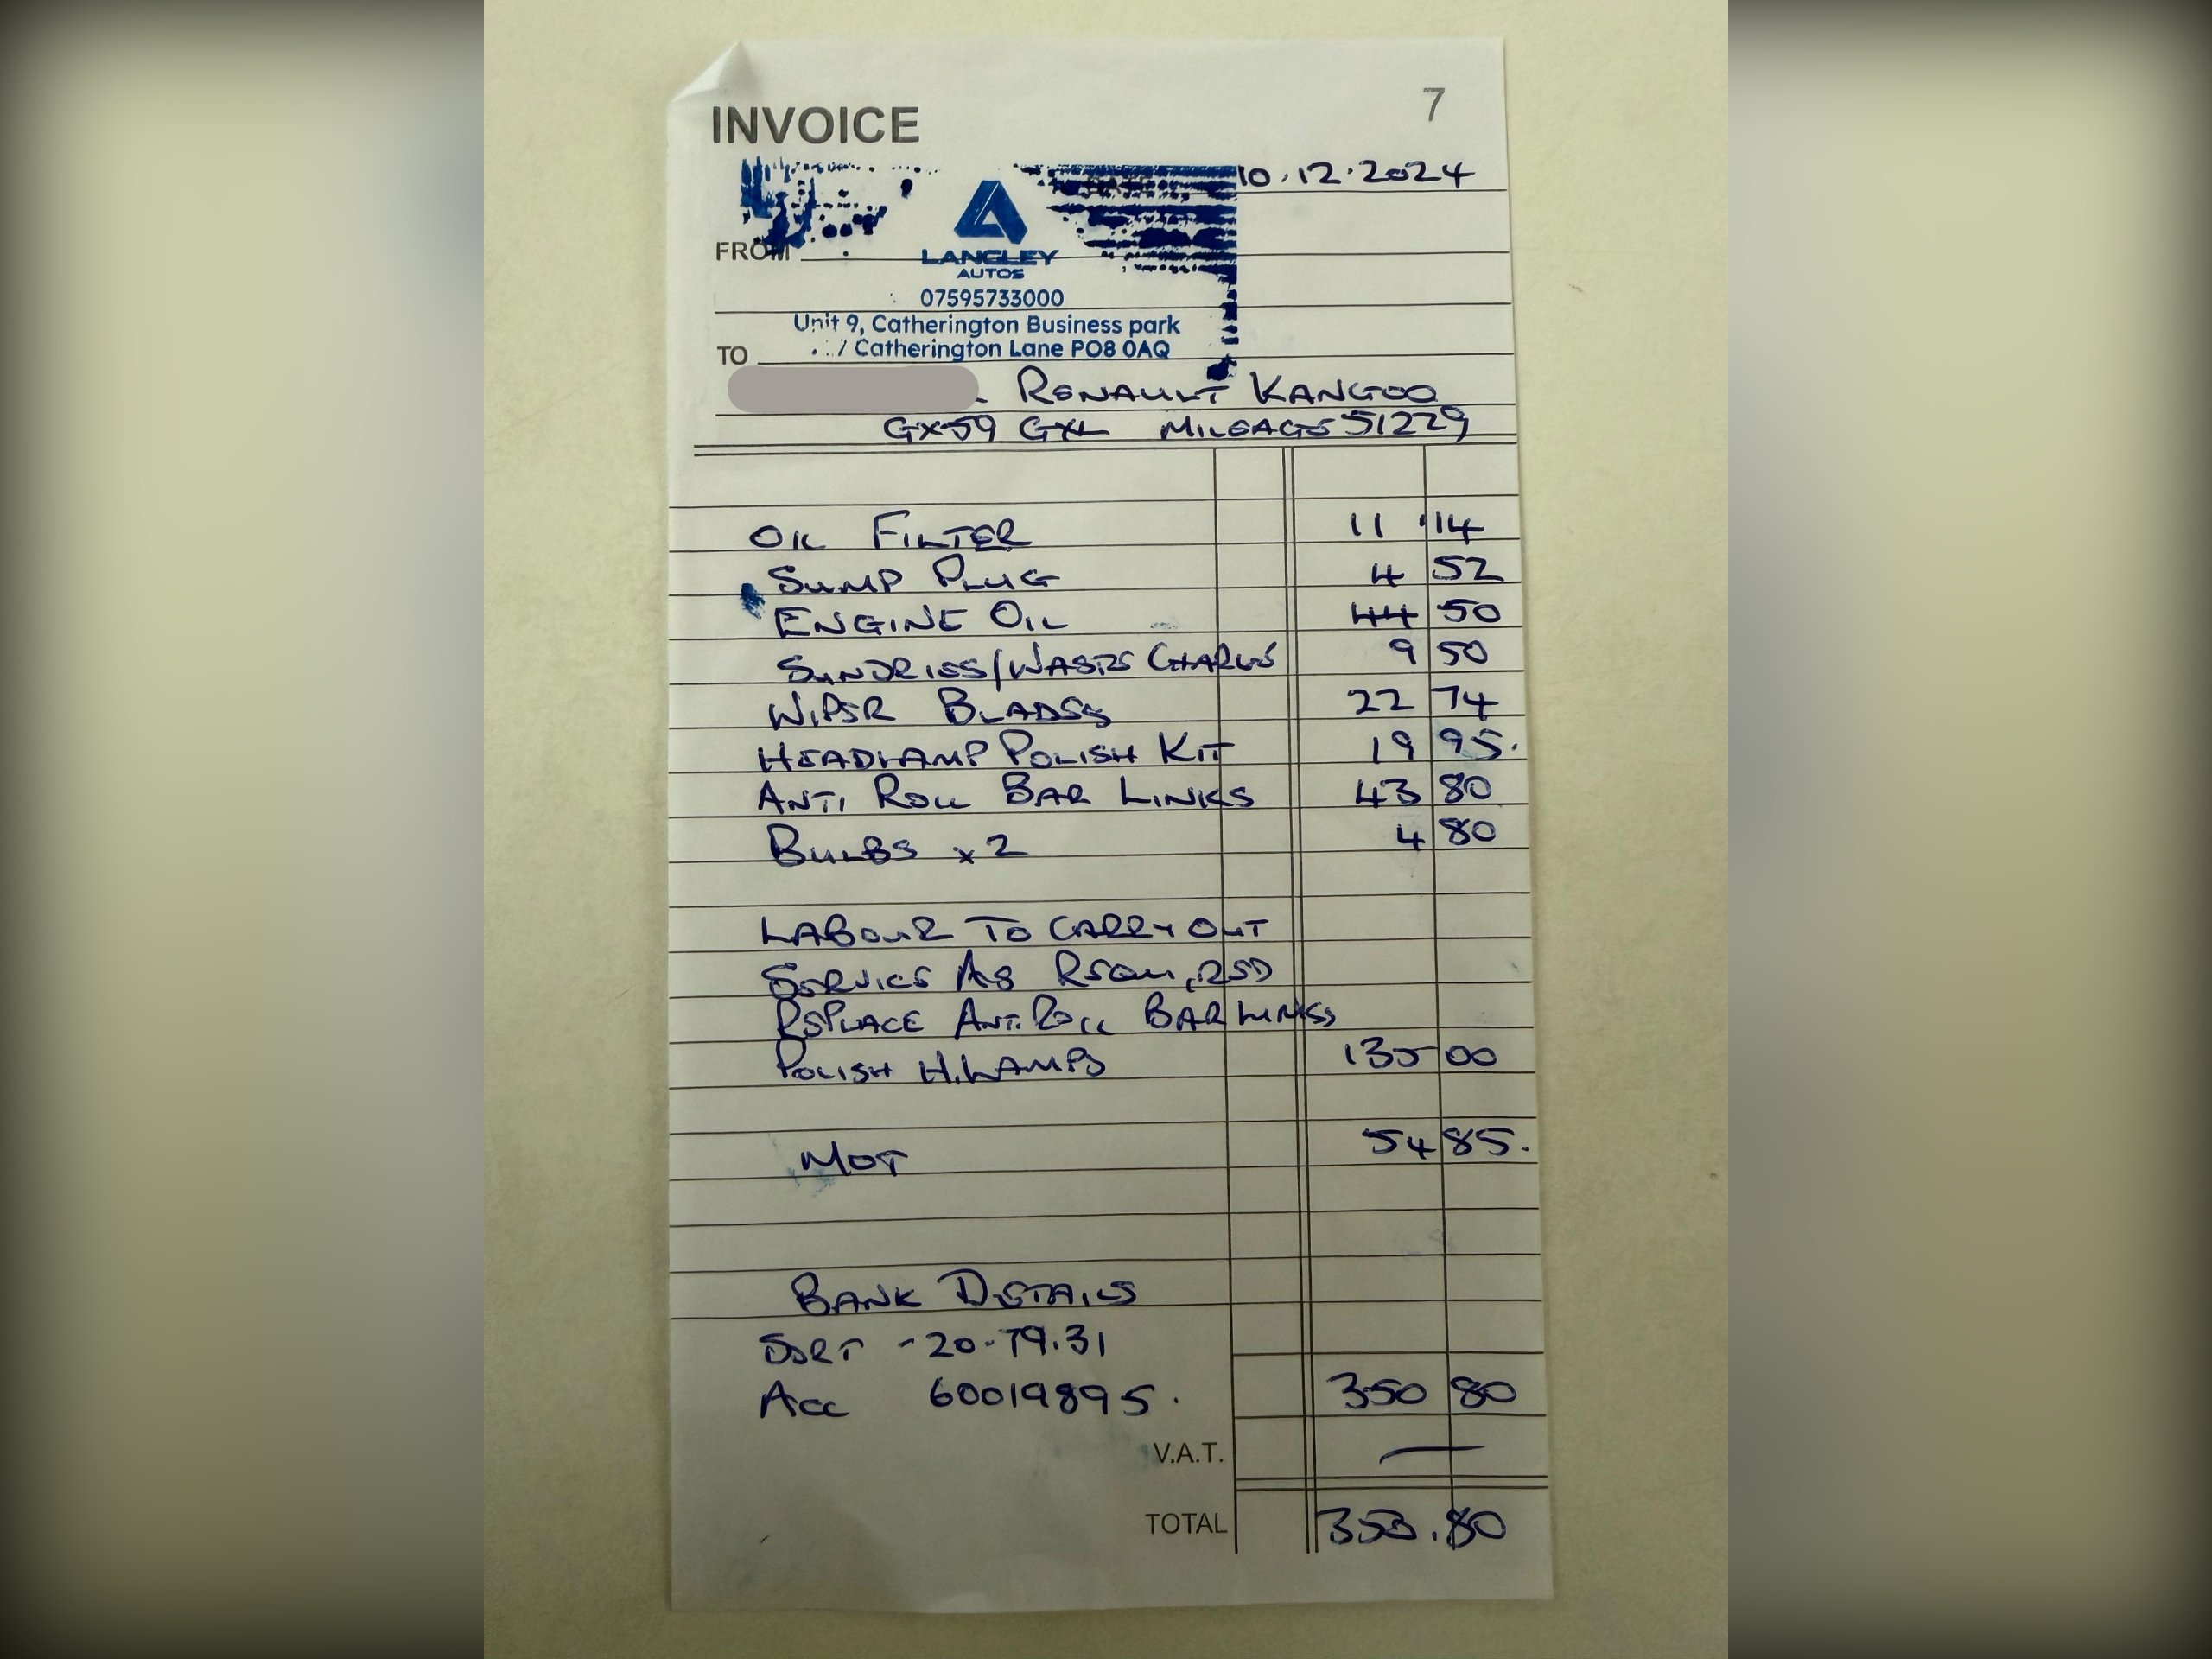 INVOICE
7
10.12.2024
FROM
LANGLEY
AUTOS
07595733000
Unit 9, Catherington Business park
Catherington Lane PO8 0AQ
TO
RENAULT KANGOO
GX59 GXL MILEAGE 51229
OIL FILTER 11 .14
SUMP PLUG 4 52
ENGINE OIL 44 50
SUNDRIES/WASTE CHARGE 9 50
WIPER BLADES 22 74
HEADLAMP POLISH KIT 19 95.
ANTI ROLL BAR LINKS 43 80
BULBS x2 4 80
LABOUR TO CARRY OUT
SERVICE AS REQUIRED
REPLACE ANTI ROLL BAR LINKS,
POLISH H.LAMPS 135 00
MOT 54 85.
BANK DETAILS
SORT - 20-79.31
ACC 60019895. 350 80
V.A.T. —
TOTAL 353.80